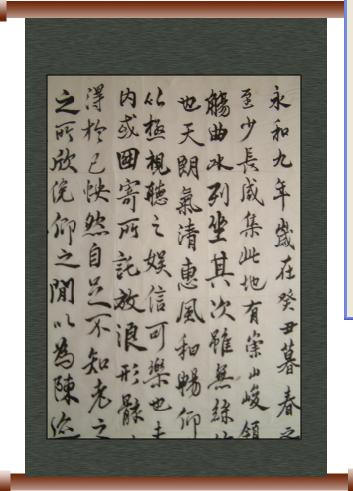 永和九年歲在癸丑暮春之
至少長咸集此地有崇山峻領
觴曲水列坐其次雖無絲
也天朗氣清惠風和暢仰
以極視聽之娛信可樂也夫
內或因寄所託放浪形骸
得於己怏然自足不知老之
之所欣俛仰之閒以為陳